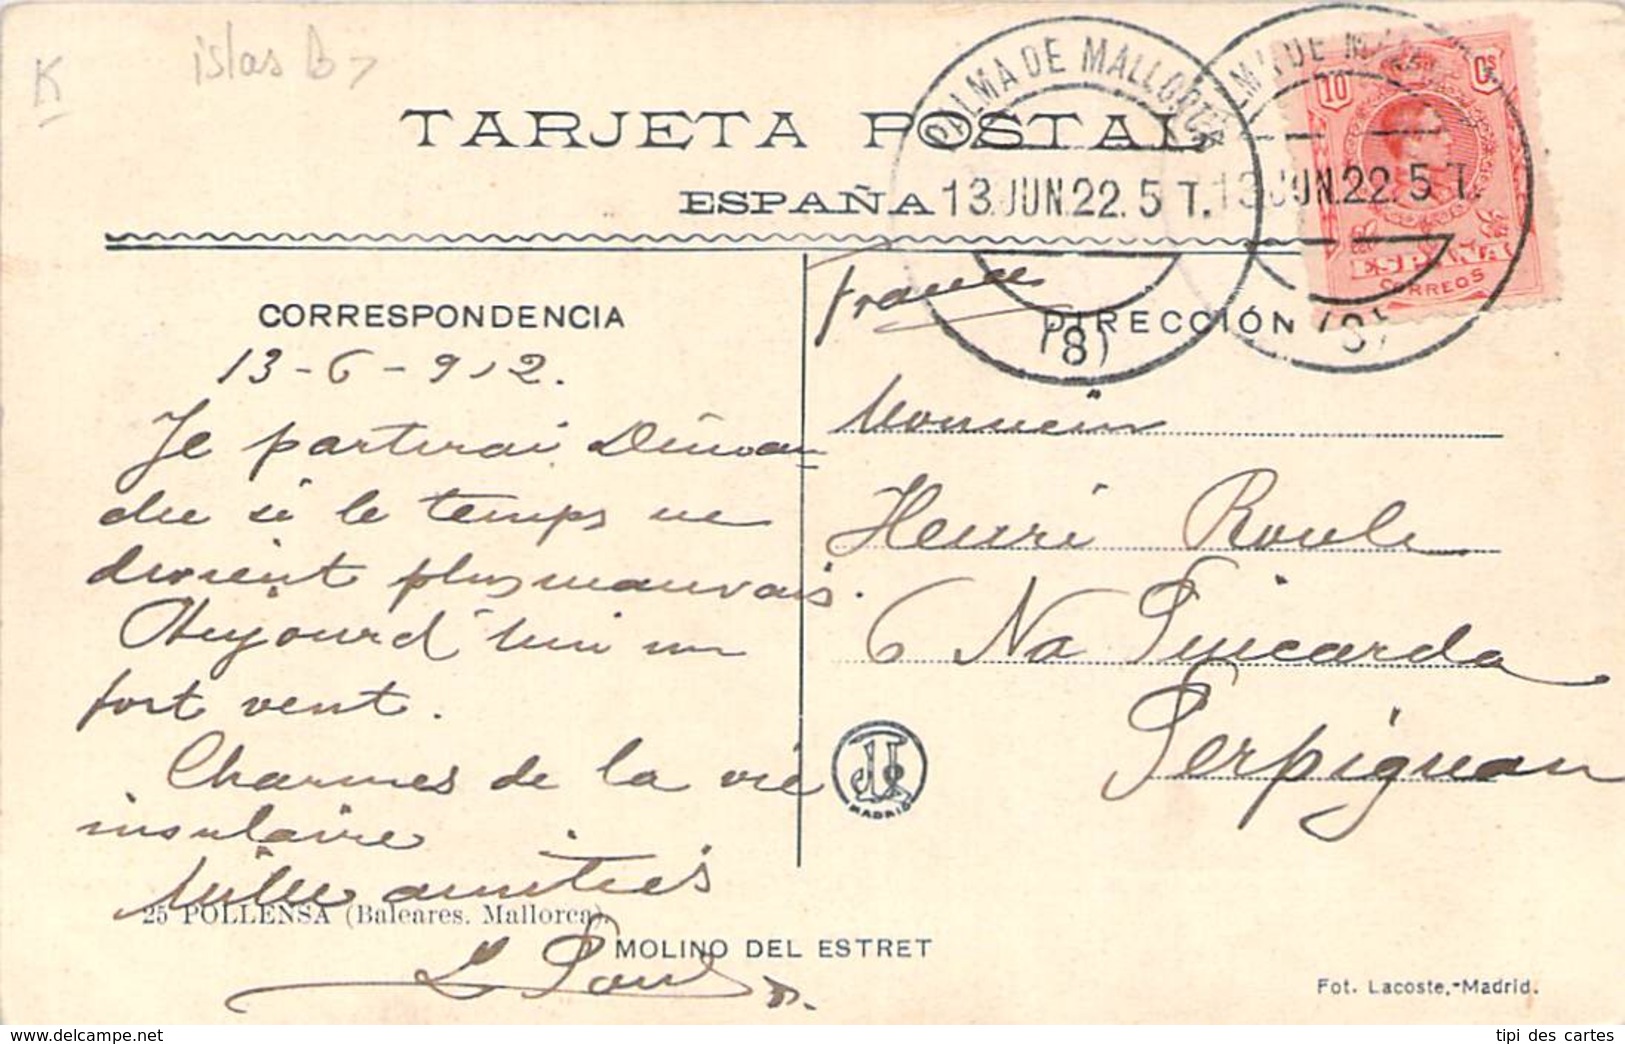 K
islas B
TARJETA POSTAL
ESPAÑA
PALMA DE MALLORCA
13.JUN.22.5 T.
(8)
13.JUN.22.5 T.
(8)
10 Cs
ESPAÑA
CORREOS
CORRESPONDENCIA
DIRECCIÓN
France
13-6-912.
Je partirai Diman-
che si le temps ne
devient plus mauvais.
Aujourd'hui un
fort vent.
Charmes de la vie
insulaire
Mille amitiés
L Paul
Monsieur
Henri Roule
6 Na Pincarda
Perpignan
MADRID
25 POLLENSA (Baleares. Mallorca).
MOLINO DEL ESTRET
Fot. Lacoste.-Madrid.
tipi des cartes